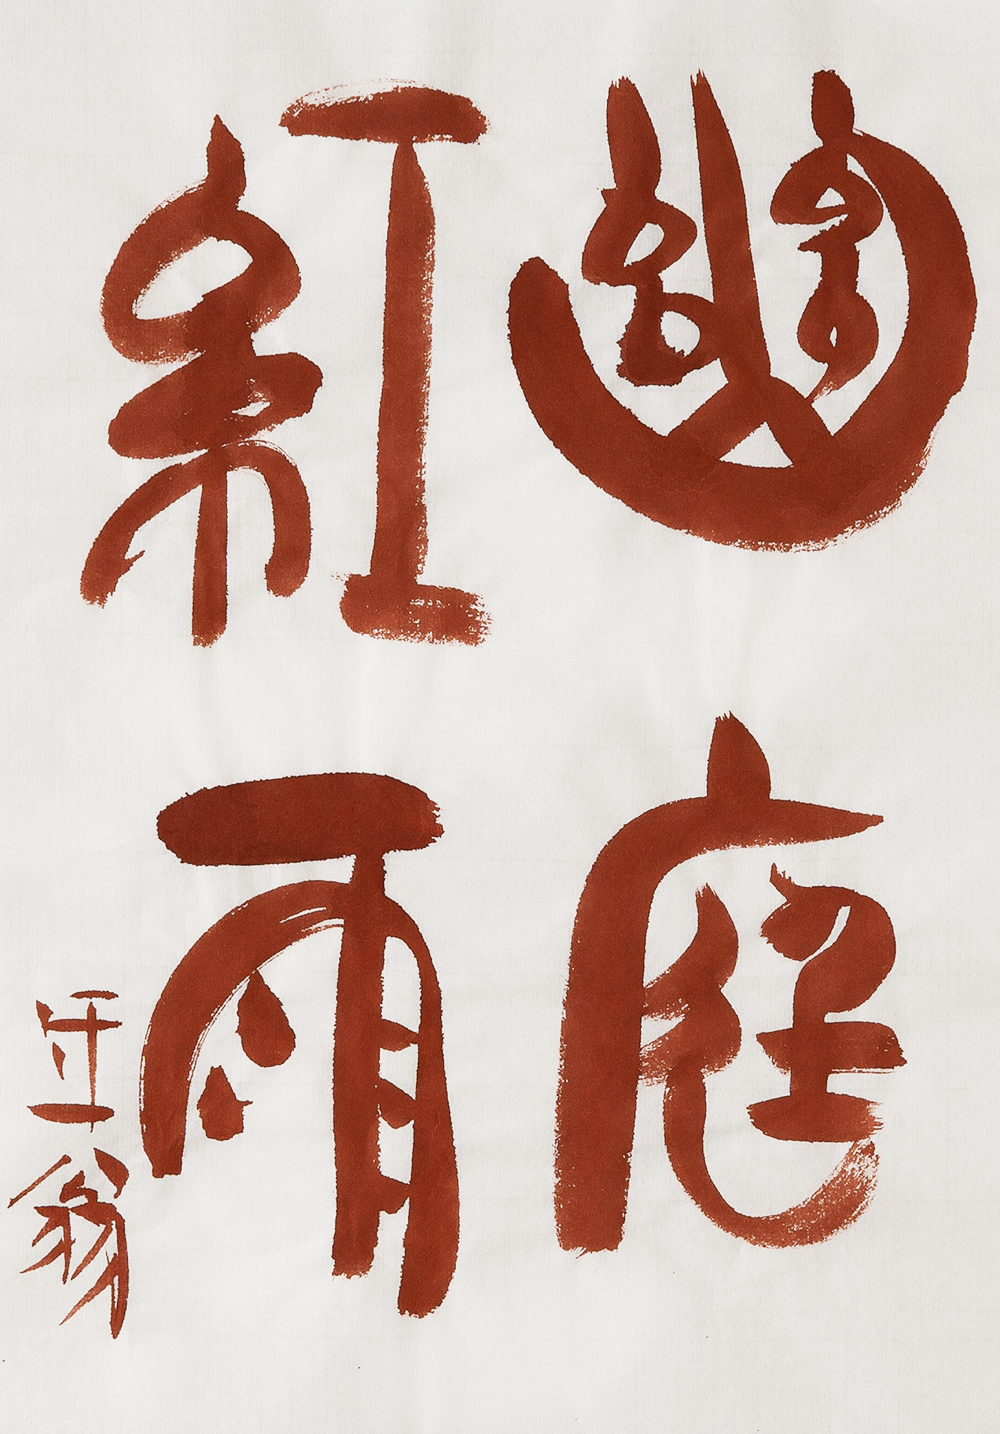 幽庭
紅雨
翁